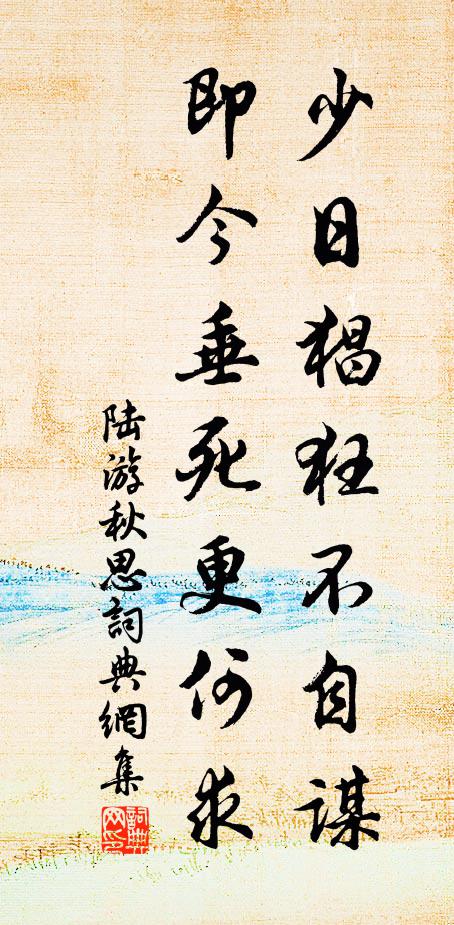 少日猖狂不自謀
即今垂死更何求
陆游秋思詞典網集
詞典網印